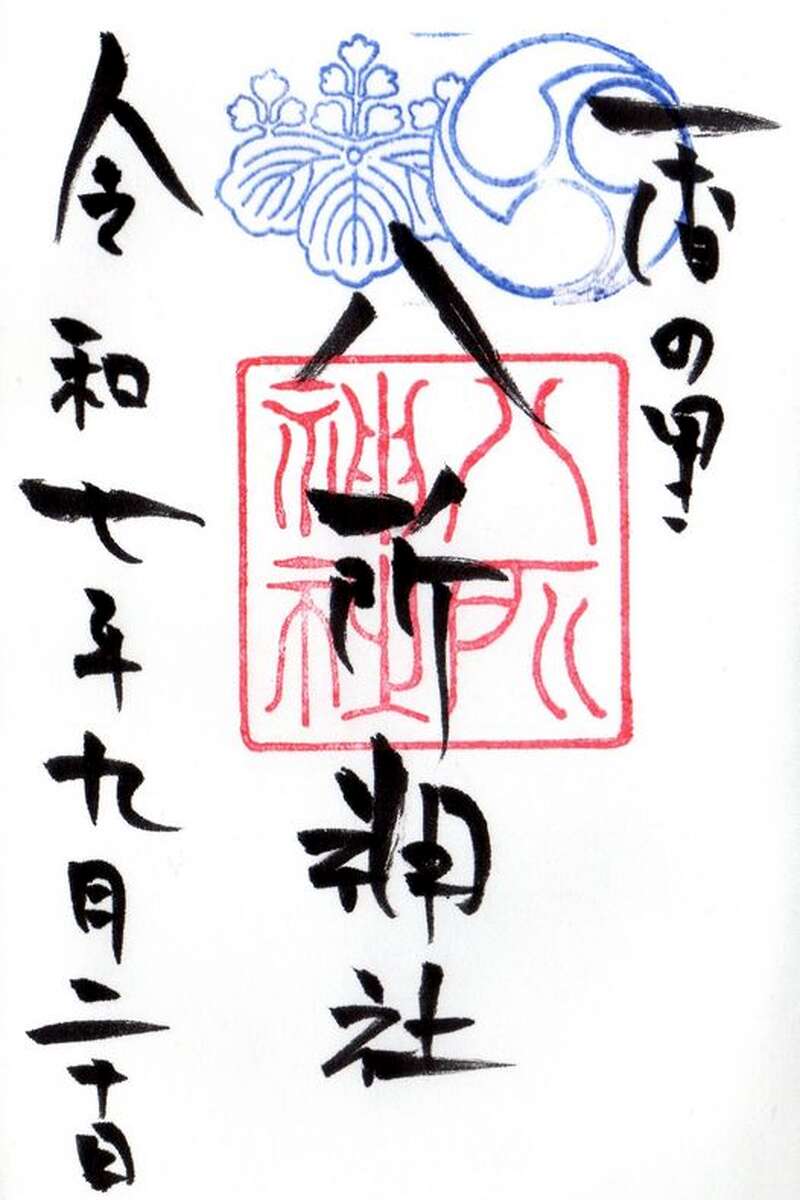 香の里
八所神社
八所神社
令和七年九月二十日